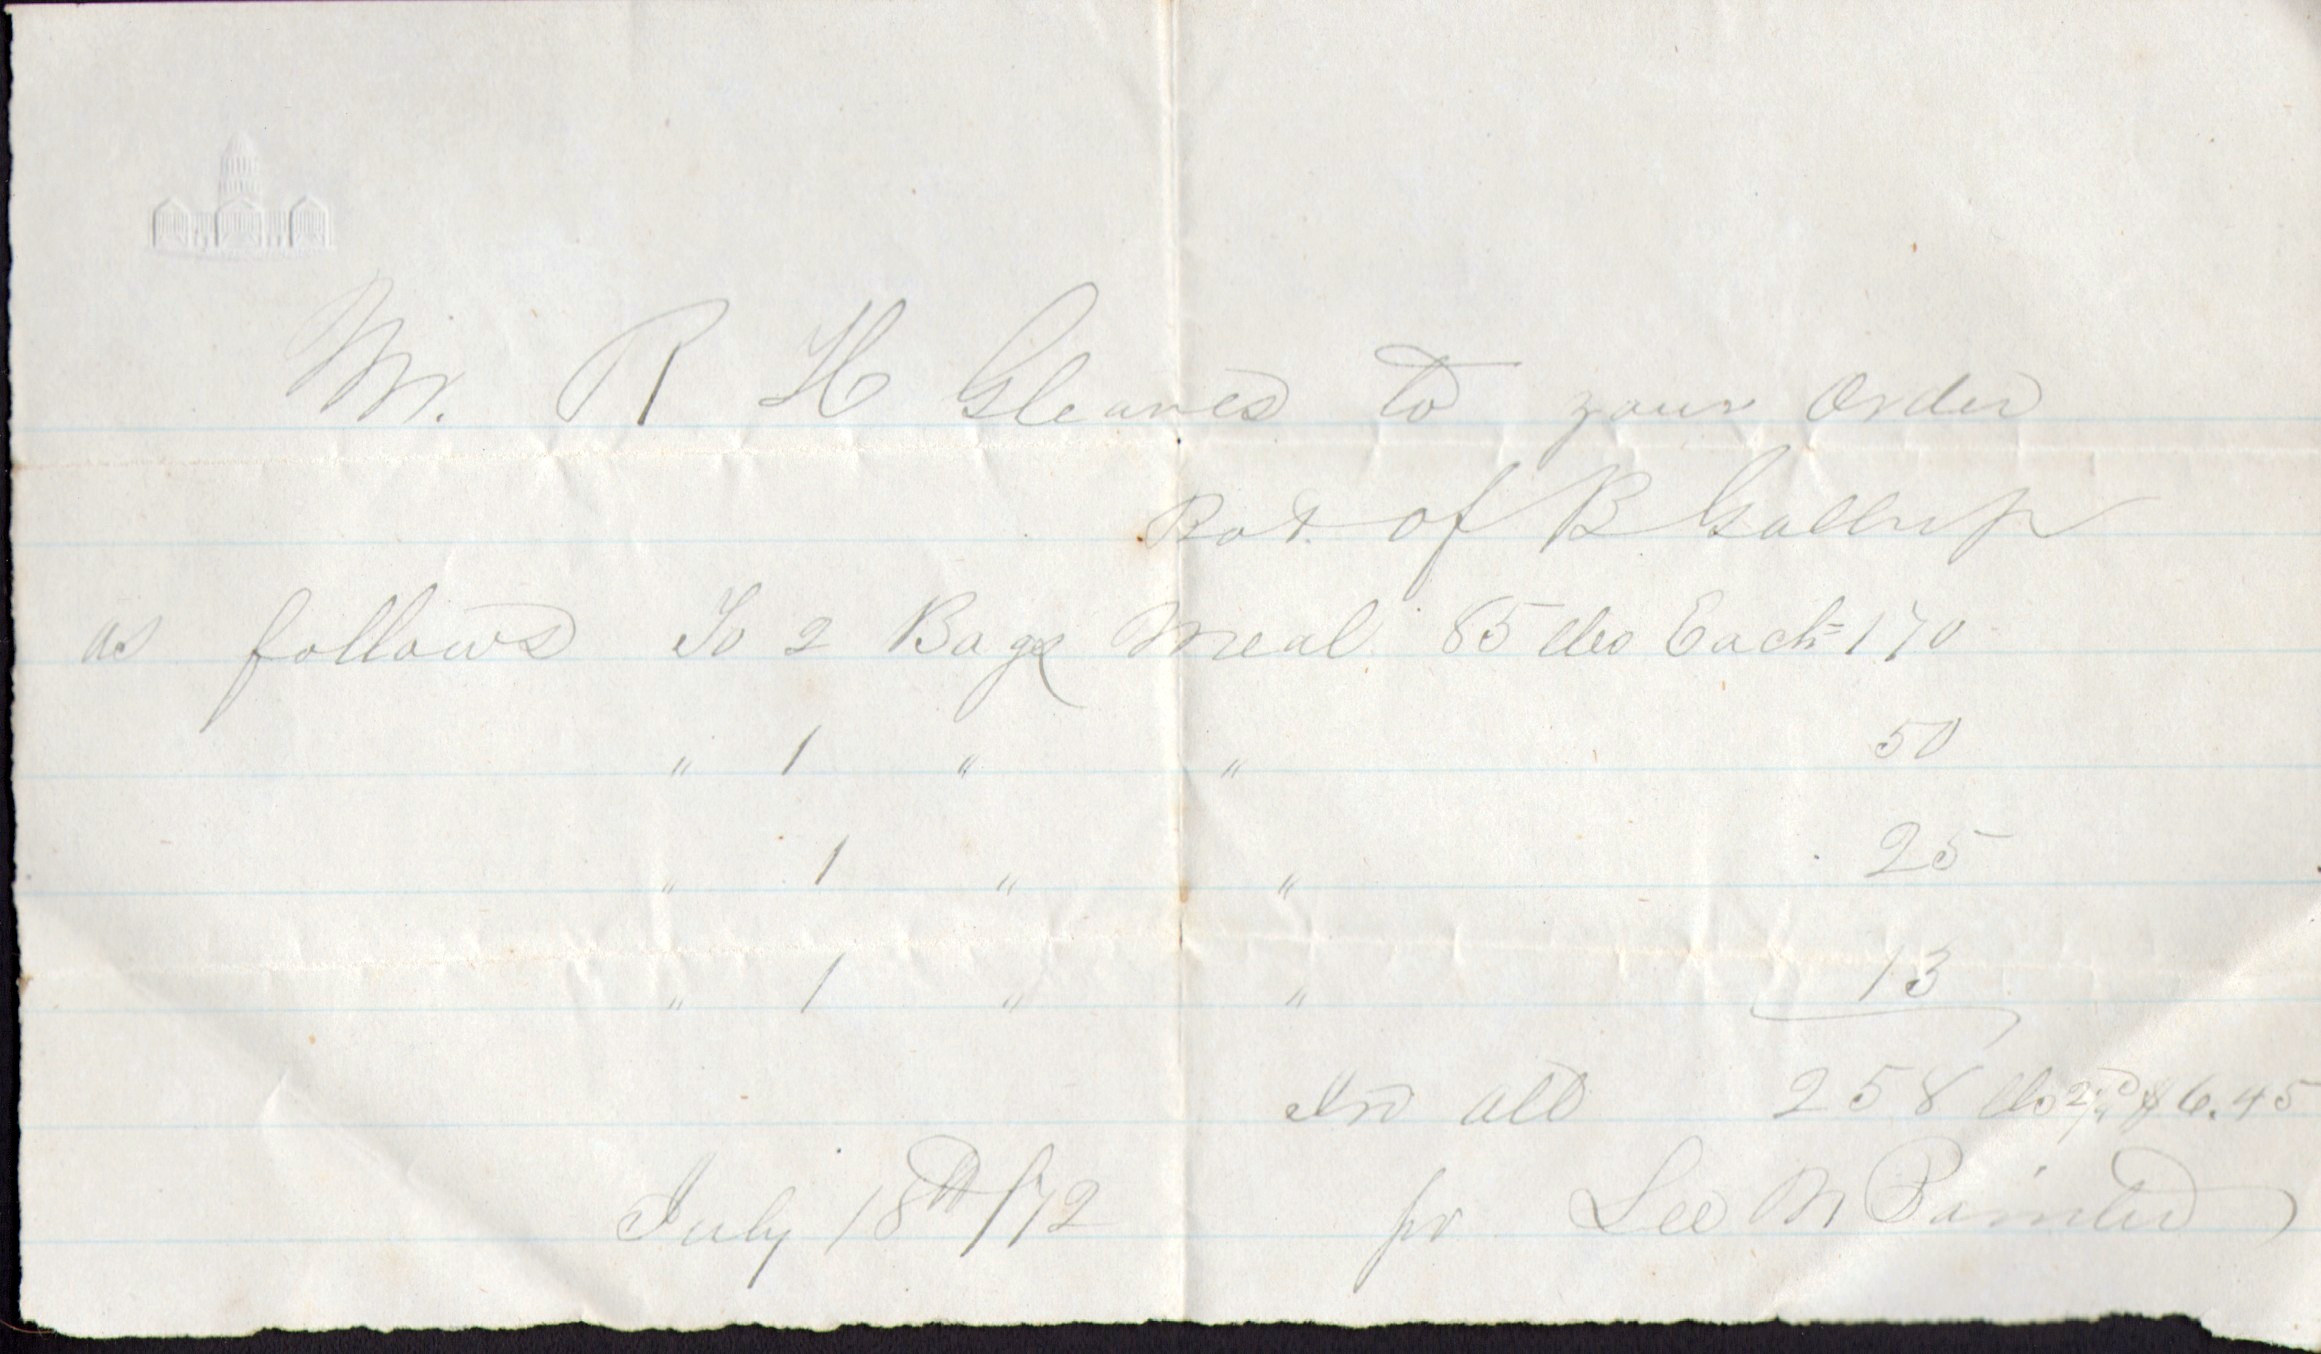 Mr. R H Gleaves to your Order
Bot. of B Gallup
as follows To 2 Bags Meal 85 lbs Each = 170
" 1 " " 50
" 1 " " 25
" 1 " " 13
In all 258 lbs $6.45
July 18th/72 pr Lee M Painter